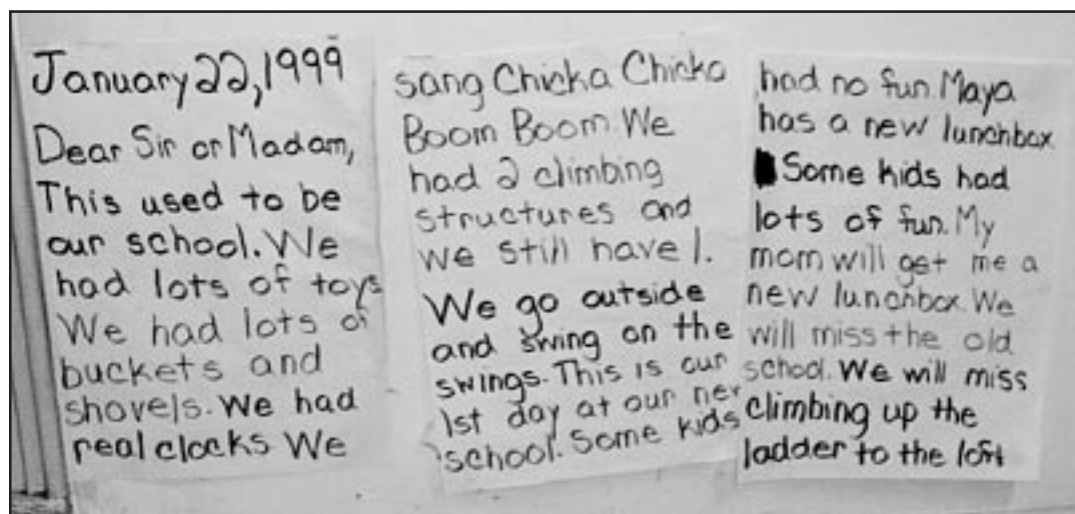 January 22, 1999
Dear Sir or Madam,
This used to be
our school. We
had lots of toys
We had lots of
buckets and
shovels. We had
real clocks We
sang Chicka Chicka
Boom Boom. We
had 2 climbing
structures and
we still have 1.
We go outside
and swing on the
swings. This is our
1st day at our new
school. Some kids
had no fun. Maya
has a new lunchbox
Some kids had
lots of fun. My
mom will get me a
new lunchbox. We
will miss the old
school. We will miss
climbing up the
ladder to the loft